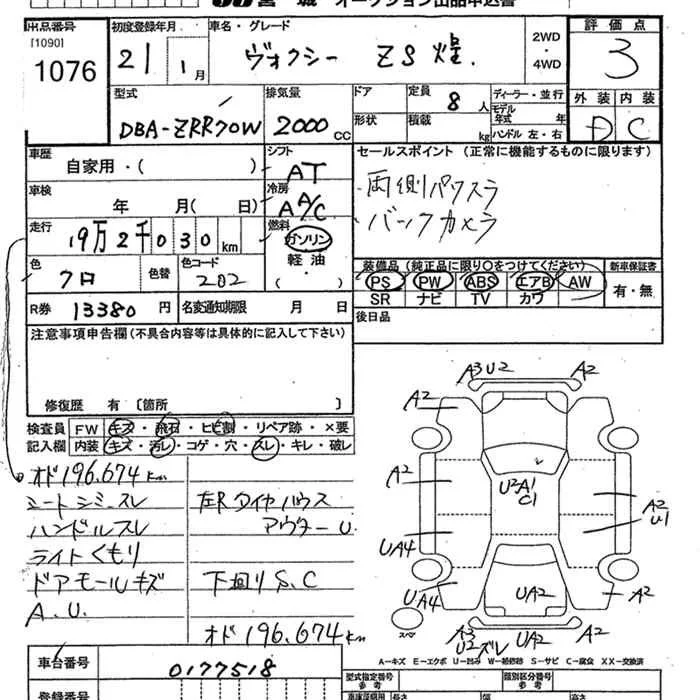 宮城 オークション出品申込書
出品番号
[1090]
1076
初度登録年月
21年 1月
車名・グレード
ヴォクシー ZS 煌
2WD
・
4WD
評価点
3
型式
DBA-ZRR70W
排気量
2000 CC
ドア
形状
定員 8人
積載 kg
ディーラー・並行
モデル年式 年
ハンドル 左・右
外装 内装
D C
車歴
自家用・( )
シフト
AT
車検
年 月( 日)
冷房
AA/C
走行
19万2千030km
燃料
ガソリン
軽油
・
( )
色
クロ
色替
色コード
202
R券 13380円
名変通知期限 月 日
セールスポイント(正常に機能するものに限ります)
両側パワスラ
バックカメラ
装備品(純正品に限り○をつけてください)
PS PW ABS エアB AW
SR ナビ TV カワ
新車保証書
有・無
後日品
注意事項申告欄(不具合内容等は具体的に記入して下さい)
修復歴 有〔箇所 〕
検査員記入欄
FW キズ・飛石・ヒビ割・リペア跡・×要
内装 キズ・汚レ・コゲ・穴・スレ・キレ・破レ
オド196.674km
シートシミ.スレ
ハンドルスレ
ライトくもり
ドアモールキズ
A.U.
左Rタイヤハウス
アウターU.
下廻りS.C
オド196.674km
車台番号
0177518
登録番号
A3U2 A2
A2 A2
A2
U2A1
C1
A2
U1
UA4
UA4 UA2 A2
スペア
A3
U2ズレ
UA2 A2
A―キズ E―エクボ U―凹み W―補修跡 S―サビ C―腐食 XX―交換済
型式指定番号
参考
類別区分番号
参考
長さ 幅 高さ